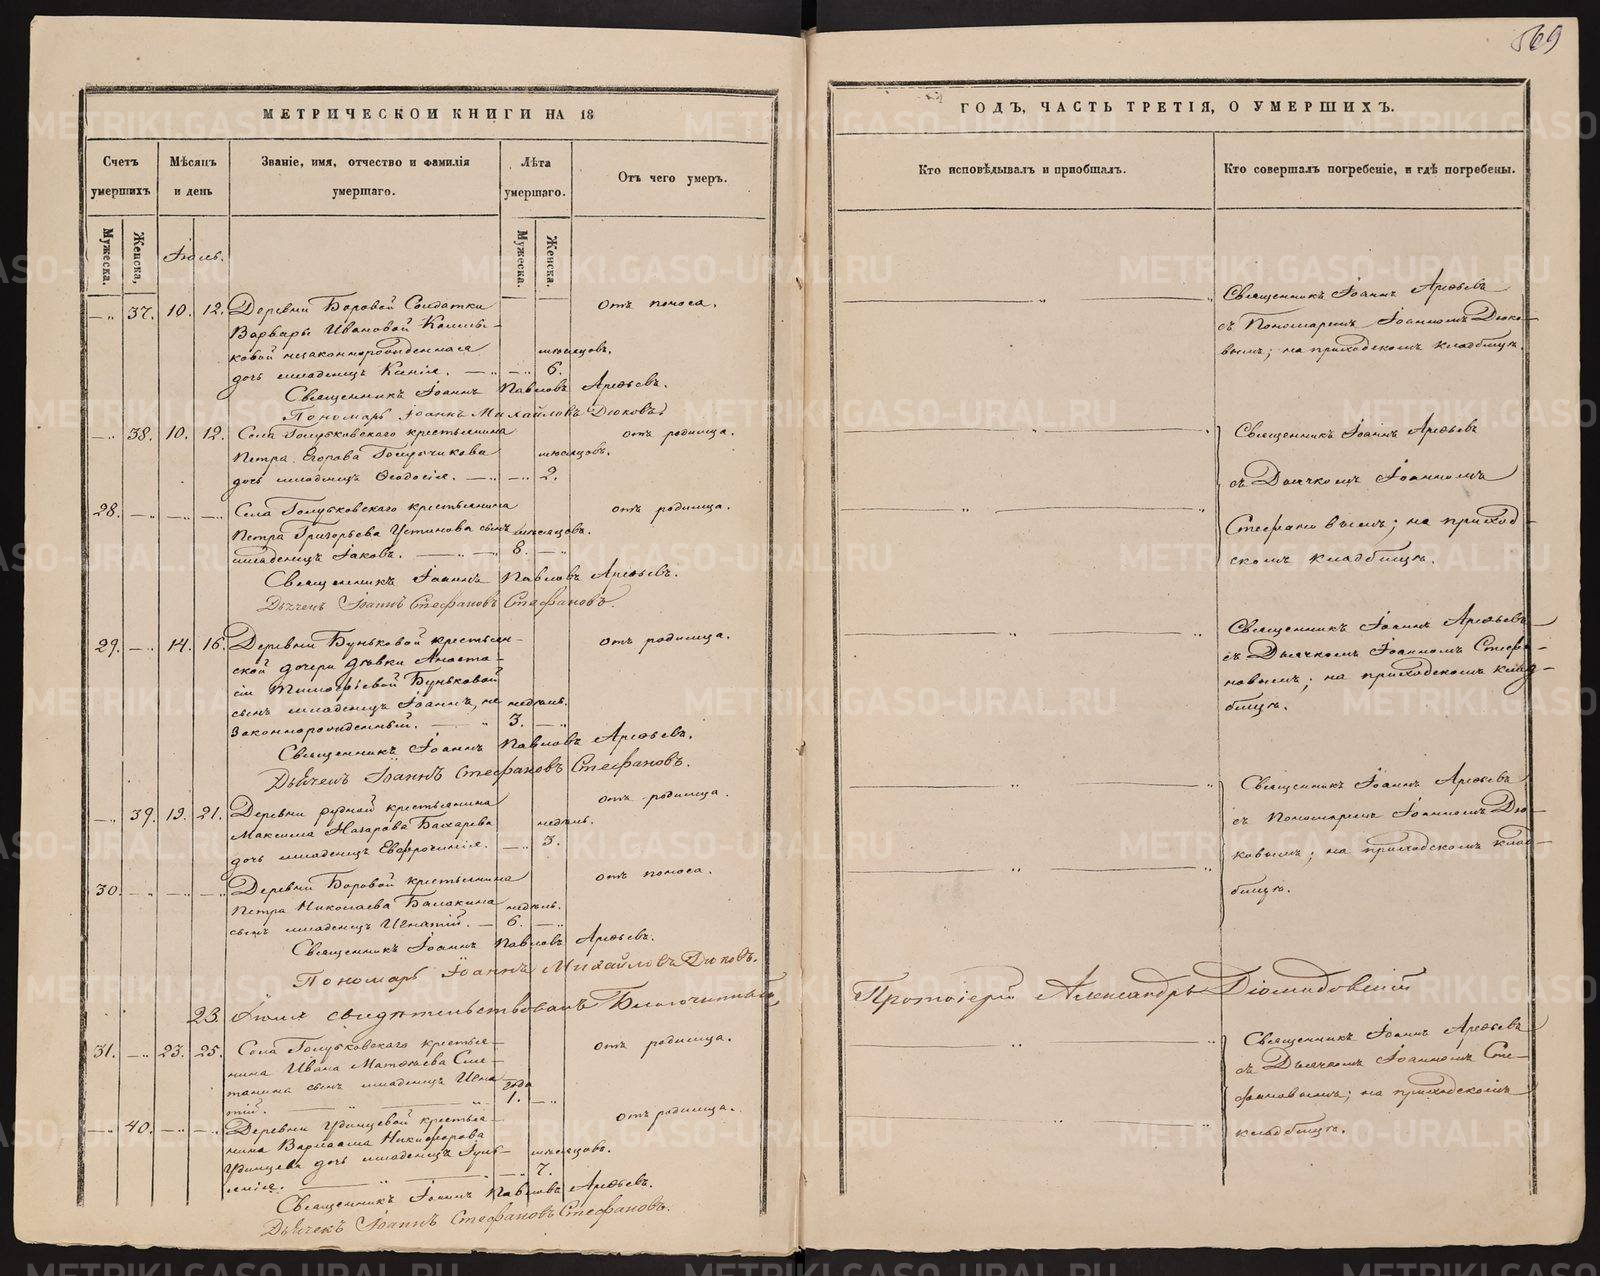 569
МЕТРИЧЕСКОЙ КНИГИ НА 18
Счетъ умершихъ
Мѣсяцъ и день
Званіе, имя, отчество и фамилія умершаго.
Лѣта умершаго.
Отъ чего умеръ.
Мужеска.
Женска.
Мужеска.
Женска.
Іюль.
37. 10. 12. Деревни Боровой Солдатки отъ поноса.
Варвары Ивановой
ковой незаконнорожденная мѣсяцовъ.
дочь младенецъ Ксенія. 6.
Священникъ Іоаннъ Павловъ Арефьевъ.
Пономарь Іоаннъ Михайловъ Дюковъ.
38. 10. 12. Села Голубковскаго крестьянина отъ родимца.
Петра Егорова Голубчикова мѣсяцовъ.
дочь младенецъ Ѳеодосія. 2.
28. Села Голубковскаго крестьянина отъ родимца.
Петра Григорьева Устинова сынъ мѣсяцовъ.
младенецъ Іаковъ. 8.
Священникъ Іоаннъ Павловъ Арефьевъ.
Дьячекъ Іоаннъ Стефановъ Стефановъ.
29. 14. 16. Деревни Буньковой крестьян- отъ родимца.
ской дочери дѣвки Анаста-
сіи Тимофѣевой Буньковой
сынъ младенецъ Іоаннъ, не недѣль.
законнорожденный. 3.
Священникъ Іоаннъ Павловъ Арефьевъ.
Дьячекъ Іоаннъ Стефановъ Стефановъ.
39. 19. 21. Деревни Рудной крестьянина отъ родимца.
Максима Назарова Бахарева недѣль.
дочь младенецъ Евфросинія. 3.
30. Деревни Боровой крестьянина отъ поноса.
Петра Николаева Балакина недѣль.
сынъ младенецъ Игнатій. 6.
Священникъ Іоаннъ Павловъ Арефьевъ.
Пономарь Іоаннъ Михайловъ Дюковъ.
23. Іюля свидѣтельствовалъ Благочинный
31. 23. 25. Села Голубковскаго крестья- отъ родимца.
нина Ивана Матвѣева Сме-
танина сынъ младенецъ Игна- года
тій. 1.
40. Деревни Удинцевой крестья- отъ родимца.
нина Варлаама Никифорова
Удинцева дочь младенецъ Іул- мѣсяцовъ.
7.
Священникъ Іоаннъ Павловъ Арефьевъ.
Дьячекъ Іоаннъ Стефановъ Стефановъ.
ГОДЪ, ЧАСТЬ ТРЕТІЯ, О УМЕРШИХЪ.
Кто исповѣдывалъ и пріобщалъ.
Кто совершалъ погребеніе, и гдѣ погребены.
Священникъ Іоаннъ Арефьевъ
съ Пономаремъ Іоанномъ Дюко-
вымъ; на приходскомъ кладбищѣ.
Священникъ Іоаннъ Арефьевъ
съ Дьячкомъ Іоанномъ
Стефановымъ; на приход-
скомъ кладбищѣ.
Священникъ Іоаннъ Арефьевъ
съ Дьячкомъ Іоанномъ Стефа-
новымъ; на приходскомъ клад-
бищѣ.
Священникъ Іоаннъ Арефьевъ
съ Пономаремъ Іоанномъ Дю-
ковымъ; на приходскомъ клад-
бищѣ.
Протоіерей Александръ Діомидовскій
Священникъ Іоаннъ Арефьевъ
съ Дьячкомъ Іоанномъ Сте-
фановымъ; на приходскомъ
кладбищѣ.
METRIKI.GASO-URAL.RU